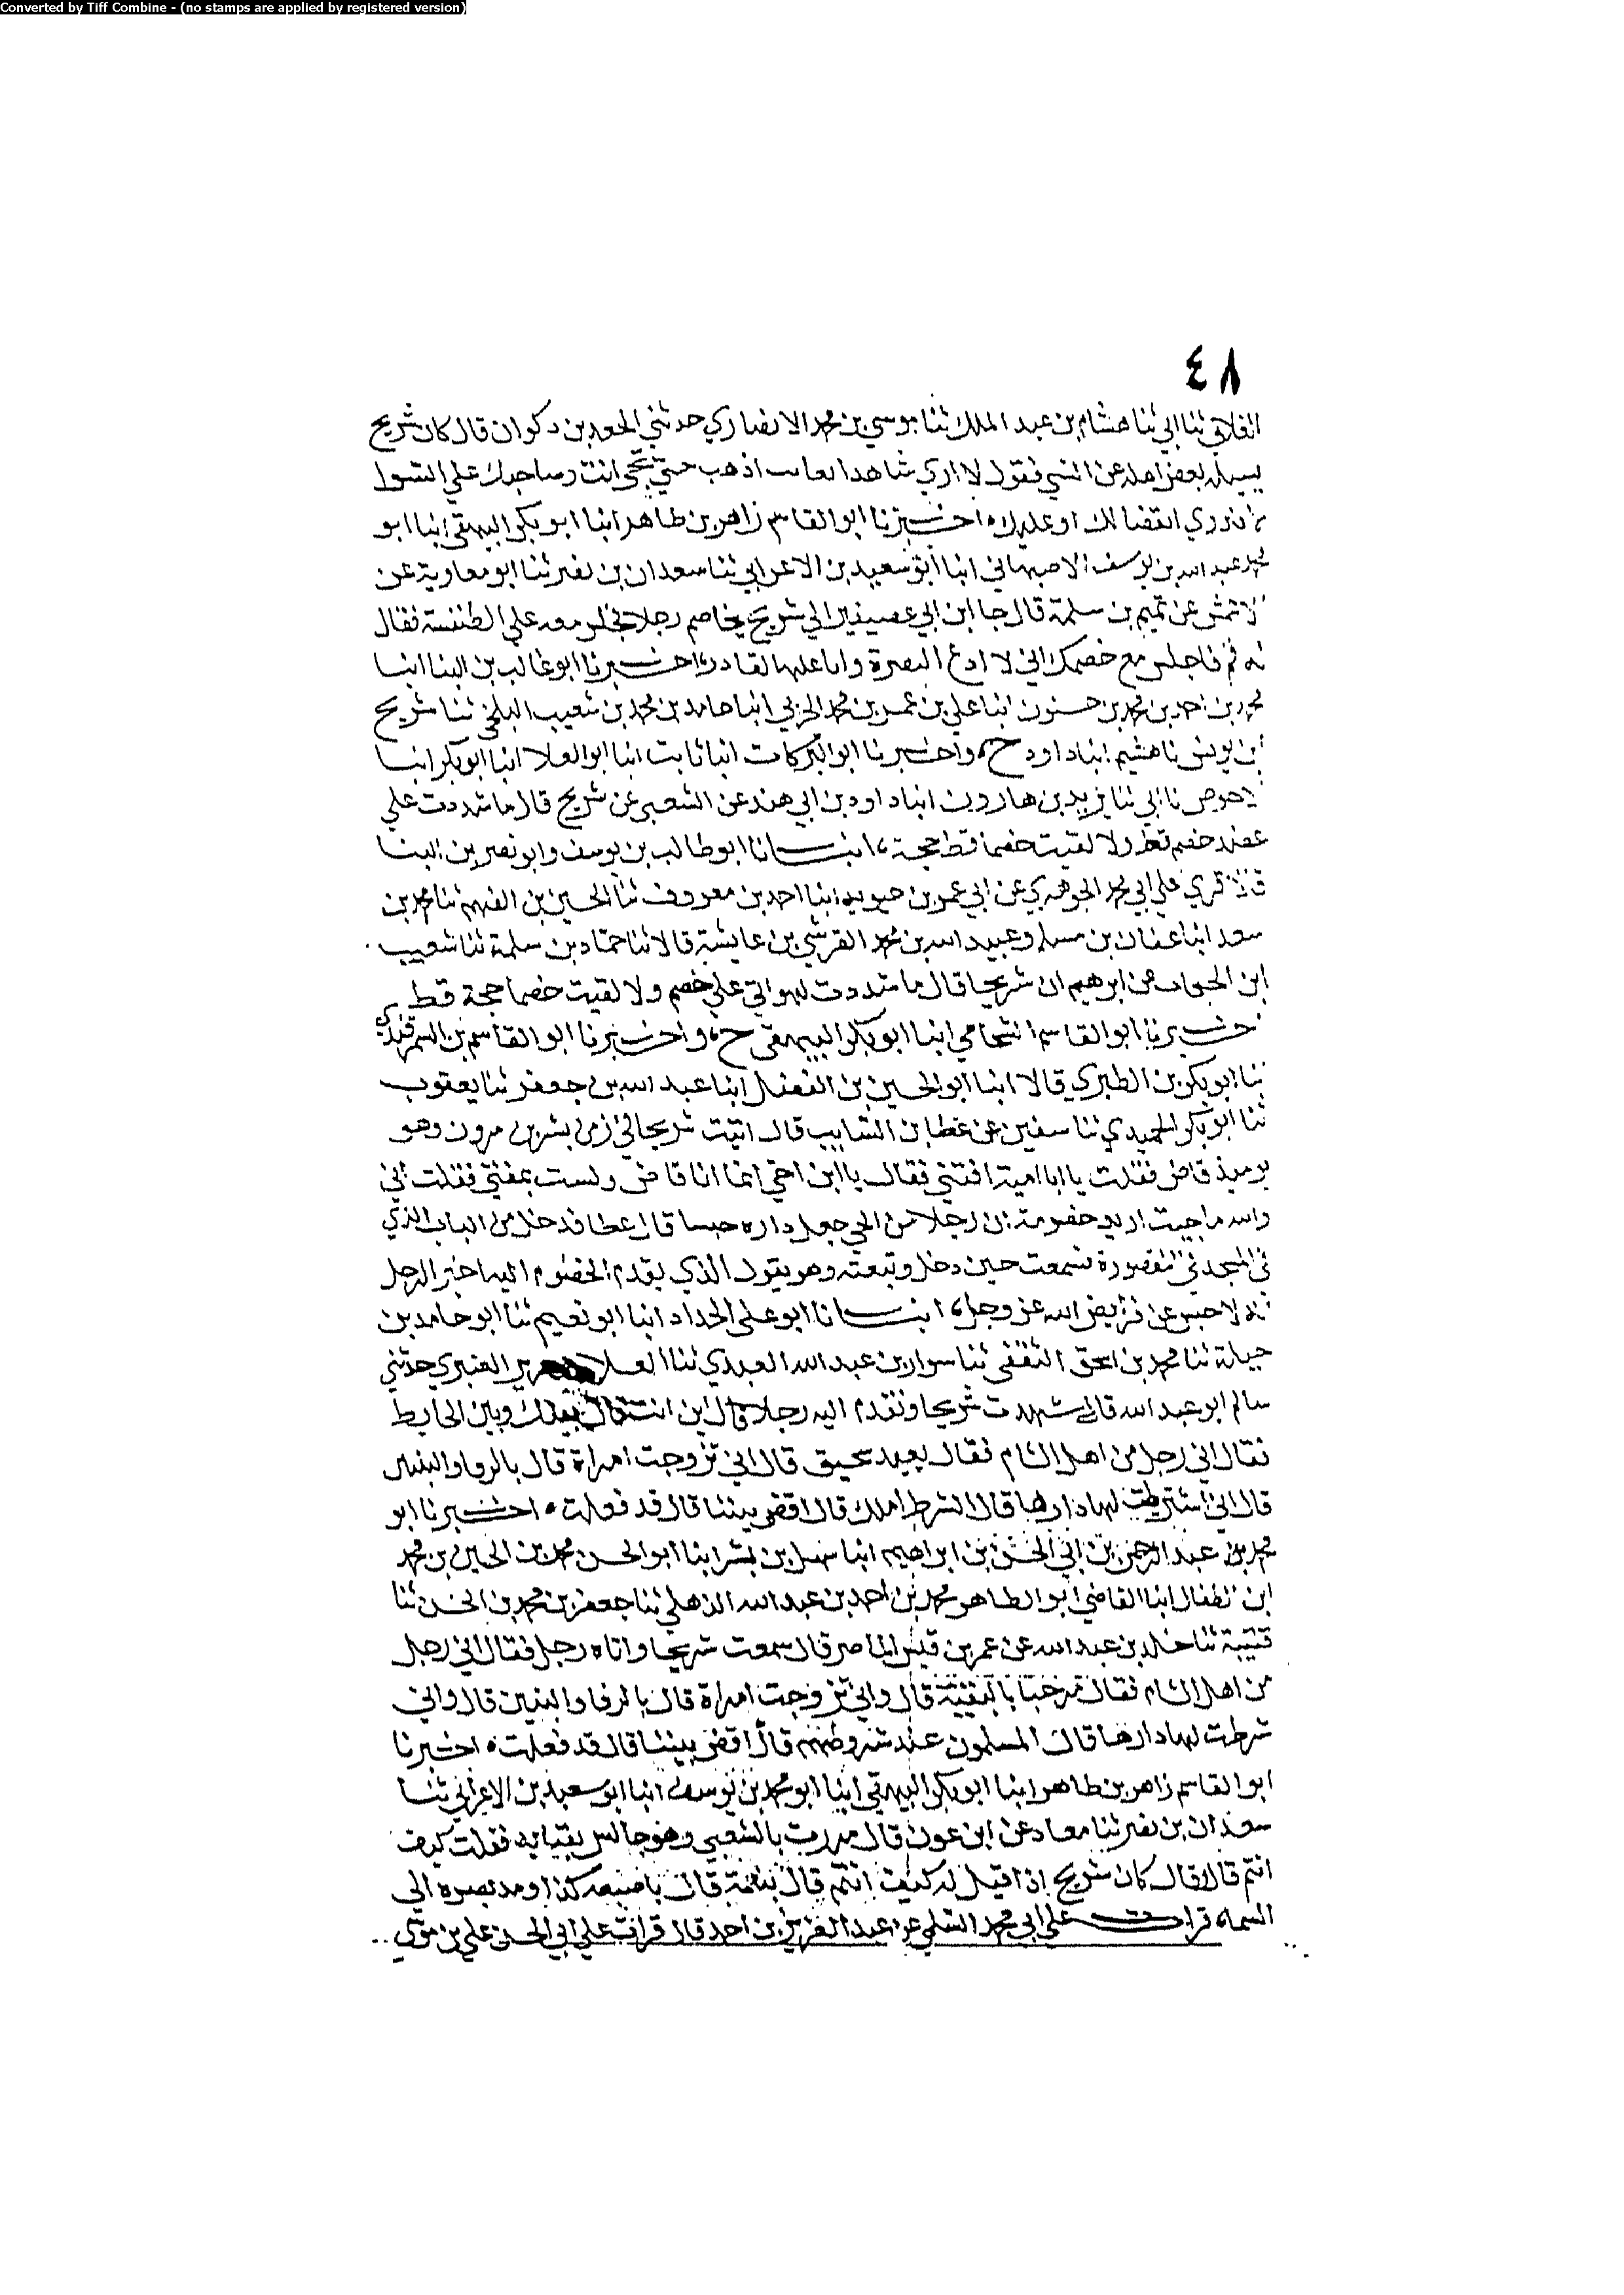 Converted by Tiff Combine - (no stamps are applied by registered version)
٤٨
الغلابي ثنا ابي ثنا هشام بن عبد الملك ثنا موسي بن محمد الانصاري حدثني الجعد بن دكوان قال كان شريح
بعض اهله عن الشي فيقول لا اري شاهدا اذهب حتي تجي انت وصاحبك علي السوا
ما تدري اقضا لك او عليك اخبرنا ابو القاسم زاهر بن طاهر ابنا ابو بكر البيهقي ابنا ابو
محمد عبد الله بن يوسف الاصبهاني ابنا ابو سعيد بن الاعرابي ثنا سعدان بن نصر ثنا ابو معاوية عن
الاعمش عن تميم بن سلمة قال جا ابن ابي عصيفير الي شريح يخاصم رجلا فجلس معه علي الطنفسة فقال
له قم فاجلس مع خصمك اني لا ادع النصرة وانا عليها لقادر اخبرنا ابو غالب بن البنا ابنا
محمد بن احمد بن محمد بن حسنون ابنا علي بن عمر بن محمد الحربي ابنا حامد بن محمد بن شعيب البلخي ثنا شريح
بن يونس نا هشيم ابنا داود ح واخبرنا ابو البركات ابنا ثابت ابنا ابو العلا ابنا ابو بكر ابنا
الاحوص نا ابي ثنا يزيد بن هارون ابنا داود بن ابي هند عن الشعبي عن شريح قال ما شددت علي
عضد خصم قط ولا لقيت خصما قط حجة انبانا ابو طالب بن يوسف وابو نصر بن البنا
قالا قري علي ابي محمد الجوهري عن ابي عمر بن حيويه ابنا احمد بن معروف ثنا الحسين بن الفهم ثنا محمد بن
سعد ابنا عفان بن مسلم وعبيد الله بن محمد القرشي بن عايشة قالا ثنا حماد بن سلمة ثنا شعيب
ابن الحبحاب عن ابرهيم ان شريحا قال ما شددت لهواتي علي خصم ولا لقيت خصما حجة قط
اخبرنا ابو القاسم الشحامي ابنا ابو بكر البيهقي ح واخبرنا ابو القاسم بن السمرقندي
ابنا ابو بكر بن الطبري قالا ابنا ابو الحسين بن الفضل ابنا عبد الله بن جعفر ثنا يعقوب
ثنا ابو بكر الحميدي ثنا سفين عن عطا بن السايب قال اتيت شريحا في زمن بشر بن مرون وهو
يوميذ قاض فقلت يا ابا امية افتني فقال يا ابن اخي انما انا قاض ولست بمفتي فقلت اني
والله ما جيت اريد خصومة ان رجلا من الحي جعل داره حبسا قال عطا فدخل من الباب الذي
في المسجد في المقصورة فسمعت حين دخل وتبعته وهو يقول الذي يقدم الخصوم اليه اخبر الرجل
انه لا حبس عن فرايض الله عز وجل انبانا ابو علي الحداد ابنا ابو نعيم ثنا ابو حامد بن
جبلة ثنا محمد بن اسحق الثقفي ثنا سوار بن عبد الله العبدي ثنا العلا بن العنبري حدثني
سالم ابو عبد الله قال شهدت شريحا وتقدم اليه رجل قال اين انت قال بينك وبين الحايط
فقال اني رجل من اهل الشام فقال بعيد سحيق قال اني تزوجت امراة قال بالرفا والبنين
قال اني اشترطت لها دارها قال الشرط املك قال اقض بيننا قال قد فعلت اخبرنا ابو
محمد بن عبد الرحمن بن ابي الحسن بن ابراهيم ابنا سهل بن بشر ابنا ابو الحسن محمد بن الحسين بن محمد
ابن الطفال ابنا القاضي ابو الطاهر محمد بن احمد بن عبد الله الذهلي ثنا جعفر بن محمد بن الحسن ثنا
قتيبة ثنا خلد بن عبد الله عن عمر بن قيس الماصر قال سمعت شريحا واتاه رجل فقال اني رجل
من اهل الشام فقال مرحبا بالبقية قال واني تزوجت امراة قال بالرفا والبنين قال واني
شرطت لها دارها قال المسلمون عند شروطهم قال اقض بيننا قال قد فعلت اخبرنا
ابو القاسم زاهر بن طاهر ابنا ابو بكر البيهقي ابنا ابو محمد بن يوسف ابنا ابو سعيد بن الاعرابي ثنا
سعدان بن نصر ثنا معاد عن ابن عون قال مررت بالشعبي وهو جالس بفنايه فقلت كيف
انتم قال قال كان شريح اذا قيل له كيف انتم قال بنعمة قال باصبعه كذا ومد بصره الي
السماء قرات علي ابي محمد السلمي عن عبد العزيز بن احمد قال قرات علي ابي الحسن علي بن موسي